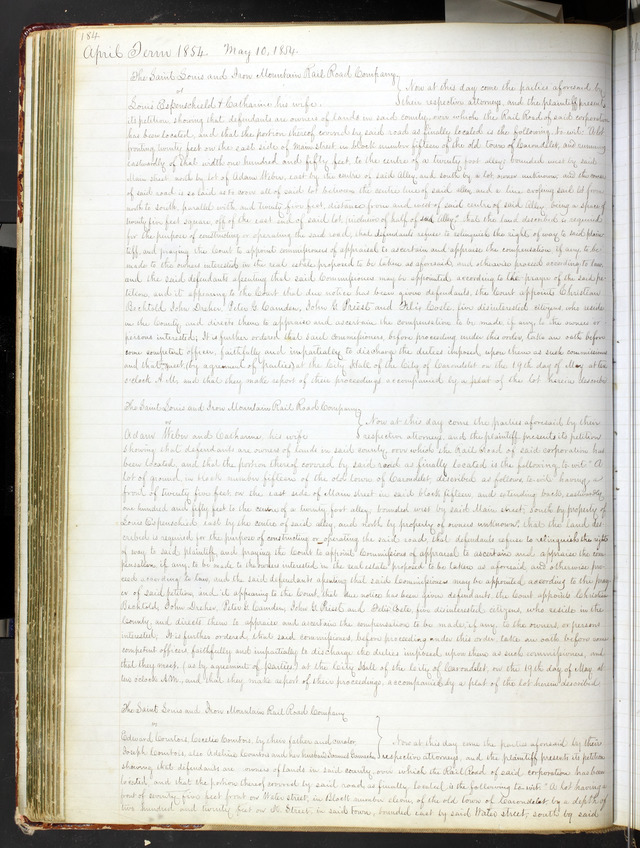 184
April Term 1854. May 10, 1854.
The Saint Louis and Iron Mountain Rail Road Company
vs
Louis Espenschield & Catharine his wife.
Now at this day come the parties aforesaid by
their respective attorneys, and the plaintiff presents
its petition, showing that defendants are owners of lands in said county, over which the Rail Road of said corporation
has been located, and that the portion thereof covered by said road as finally located is the following, to wit: "A lot
fronting twenty feet on the east side of Main street in block number fifteen of the old town of Carondelet, and running
eastwardly of that width one hundred and fifty feet, to the centre of a twenty foot alley; bounded west by said
Main street, north by lot of Adam Weber, east by the centre of said alley, and south by a lot owner unknown; and the
of said road is so laid as to cover all of said lot between the centre line of said alley and a line crossing said lot from
north to south, parallel with and twenty five feet, distance from and west of said centre of said alley being a space of
twenty five feet square off of the east end of said lot, inclusive of half of said alley." that the land described is required
for the purpose of constructing or operating the said road, that defendants refuse to relinquish the right of way to said plain-
tiff, and praying the Court to appoint commissioners of appraisal to ascertain and appraise the compensation if any, to be
made to the owners interested in the real estate proposed to be taken as aforesaid, and otherwise proceed according to law,
and the said defendants assenting that said Commissioners may be appointed according to the prayer of the said pe-
tition, and it appearing to the Court that due notice has been given defendants, the Court appoints Christian
Bechtold, John Dreher, Peter G Camden, John G Priest and Felix Coste, five disinterested citizens who reside
in the County, and directs them to appraise and ascertain the compensation to be made if any, to the owners or
persons interested; It is further ordered that said commissioners, before proceeding under this order, take an oath before
some competent officer, faithfully and impartially to discharge the duties imposed upon them as such commissioners
and that meet (by agreement of parties) at the City Hall of the City of Carondelet on the 19th day of May at ten
o'clock A.M., and that they make report of their proceedings accompanied by a plat of the lot herein describe
The Saint Louis and Iron Mountain Rail Road Company
vs
Adam Weber and Catharine, his wife
Now at this day come the parties aforesaid by their
respective attorneys, and the plaintiff presents its petition
showing that defendants are owners of lands in said county, over which the Rail Road of said corporation has
been located, and that the portion thereof covered by said road as finally located is the following to wit: "A
lot of ground in block number fifteen of the old town of Carondelet, described as follows to wit: having a
front of twenty five feet on the east side of Main street in said block fifteen and extending back, eastwardly
one hundred and fifty feet to the centre of a twenty foot alley, bounded west by said Main street, south by property of
Louis Espenschied, east by the centre of said alley, and north by property of owners unknown; that the land des-
cribed is required for the purpose of constructing or operating the said road, that defendants refuse to relinquish the right
of way to said plaintiff, and praying the Court to appoint Commissioners of appraisal to ascertain and appraise the com-
pensation if any, to be made to the owners interested in the real estate proposed to be taken as aforesaid, and otherwise pro-
ceed according to law, and the said defendants assenting that said Commissioners may be appointed according to the pray-
er of said petition, and it appearing to the Court, that due notice has been given defendants, the Court appoints Christian
Bechtold, John Dreher, Peter G Camden, John G. Priest and Felix Coste, five disinterested citizens, who reside in the
County, and directs them to appraise and ascertain the compensation to be made, if any, to the owners or persons
interested; It is further ordered, that said commissioners, before proceeding under this order, take an oath before some
competent officer, faithfully and impartially to discharge the duties imposed upon them as such commissioners, and
that they meet, (as by agreement of parties) at the City Hall of the City of Carondelet, on the 19th day of May at
ten o'clock A.M., and that they make report of their proceedings, accompanied by a plat of the lot herein described
The Saint Louis and Iron Mountain Rail Road Company
vs
Edward Courtois, Cecelia Courtois, by their father and curator
Joseph Courtois, also Adeline Courtois and her husband Samuel
Now at this day come the parties aforesaid by their
respective attorneys, and the plaintiff presents its petition
showing that defendants are owners of lands in said county, over which the Rail Road of said corporation has been
located, and that the portion thereof covered by said road, as finally located is the following, to wit: "A lot having a
front of seventy five feet front on Water street, in Block number eleven, of the old town of Carondelet, by a depth of
two hundred and twenty feet on St. Street, in said town, bounded east by said Water street, south by said